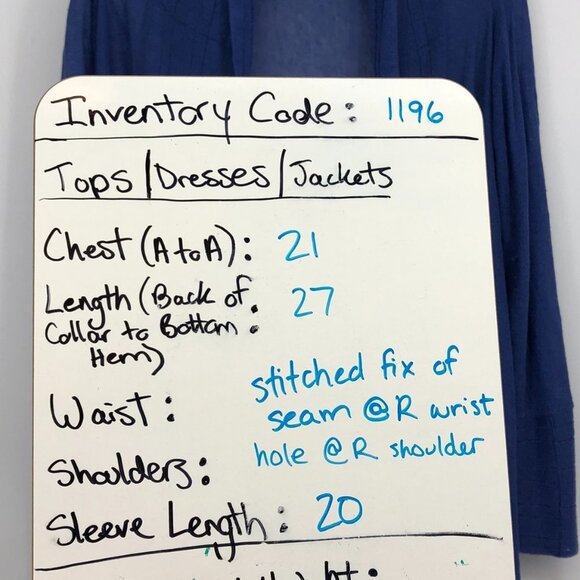 Inventory Code: 1196
Tops/Dresses/Jackets
Chest (A to A): 21
Length (Back of : 27
Collar to Bottom
Hem)
stitched fix of
Waist: seam @ R wrist
hole @ R shoulder
Shoulders:
Sleeve Length: 20